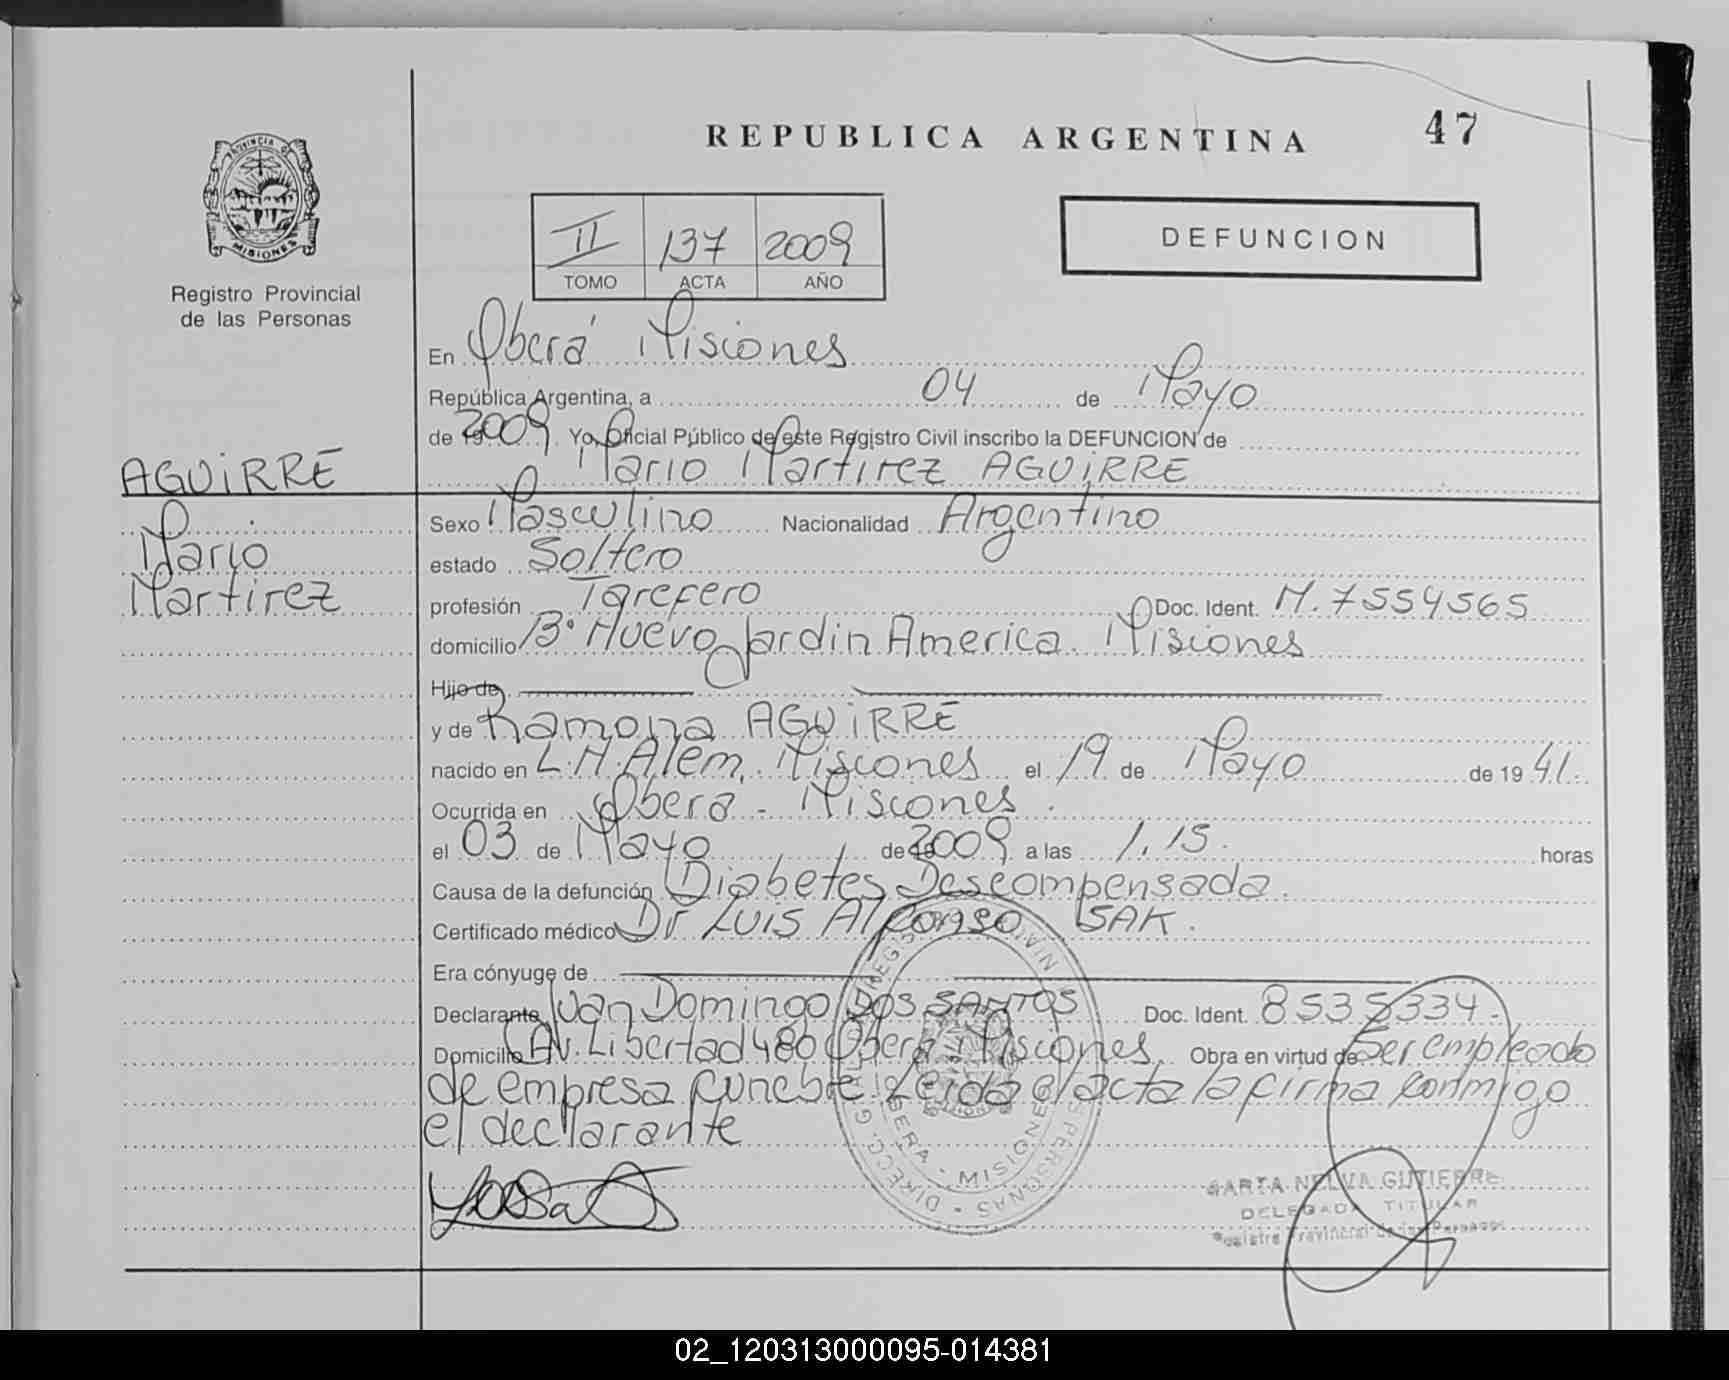 REPUBLICA ARGENTINA 47
PROVINCIA DE
MISIONES
Registro Provincial
de las Personas
II 137 2009
TOMO ACTA AÑO
DEFUNCION
En Oberá Misiones
República Argentina, a 04 de Mayo
de 19 2009. Yo, Oficial Público de este Registro Civil inscribo la DEFUNCION de
Mario Martirez AGUiRRE
AGUiRRE
Mario
Martirez
Sexo Masculino Nacionalidad Argentino
estado Soltero
profesión Tarefero Doc. Ident. M. 7554565
domicilio B° Nuevo Jardin America. Misiones
Hijo de
y de Ramona AGUiRRE
nacido en L.N. Alem, Misiones el 19 de Mayo de 19 41.
Ocurrida en Oberá - Misiones.
el 03 de Mayo de 19 2009 a las 1.15. horas
Causa de la defunción Diabetes Descompensada.
Certificado médico Dr Luis Alfonso SAK.
Era cónyuge de
Declarante Juan Domingo DOS SANTOS Doc. Ident. 8535334.
Domicilio AV. Libertad 480 Oberá Misiones. Obra en virtud de Ser empleado
de empresa funebre. Leida el acta la firma conmigo
el declarante
OBERA - MISIONES
DELEGADA TITULAR
Registro Provincial de las Personas
02_120313000095-014381